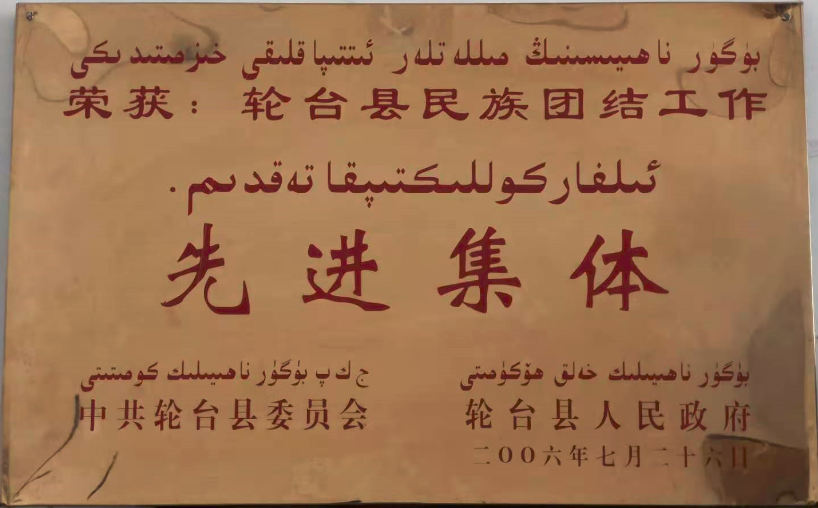 بۈگۈر ناھىيىسىنىڭ مىللەتلەر ئىتتىپاقلىقى خىزمىتىدىكى
荣获：轮台县民族团结工作
ئىلغار كوللىكتىپقا تەقدىم.
先进集体
ج ك پ بۈگۈر ناھىيىلىك كومىتىتى
中共轮台县委员会
بۈگۈر ناھىيىلىك خەلق ھۆكۈمىتى
轮台县人民政府
二〇〇六年七月二十六日